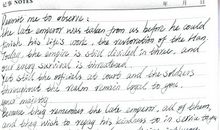 记事 NOTES
Permit me to observe:
the late emperor was taken from us before he could
finish his life's work, the restoration of the Han.
Today, the empire is still divided in three, and
our very survival is threatened.
Yet still the officials at court and the soldiers
throughout the realm remain loyal to you,
your majesty.
Because they remember the late emperor, all of them,
and they wish to repay his kindness in service to